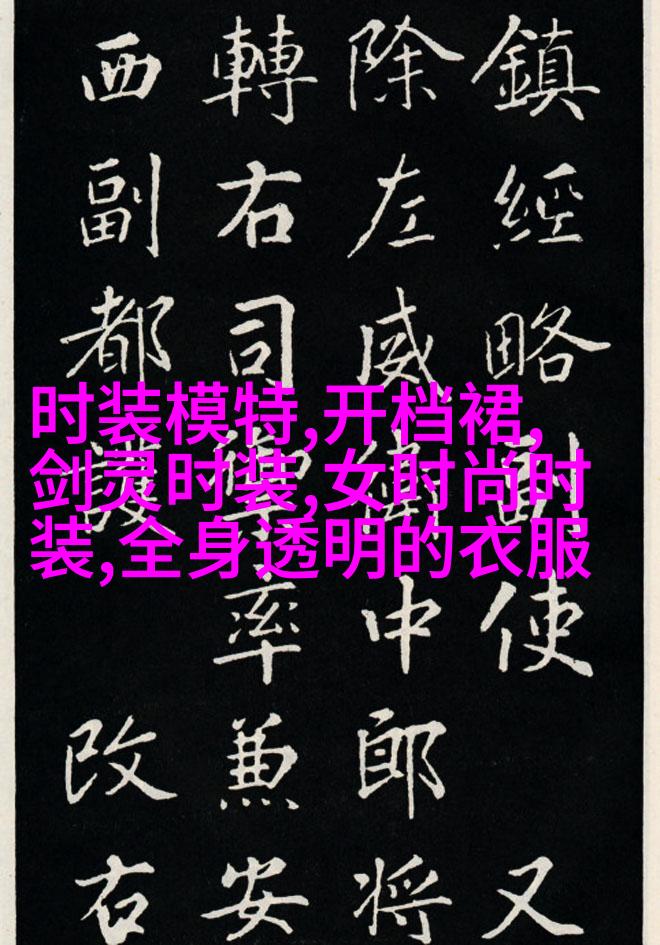 鎮經略副使 又
除左威衛中郎將
轉右司禦率兼安
西副都護 改右
时装模特,开档裙,
剑灵时装,女时尚时
装,全身透明的衣服